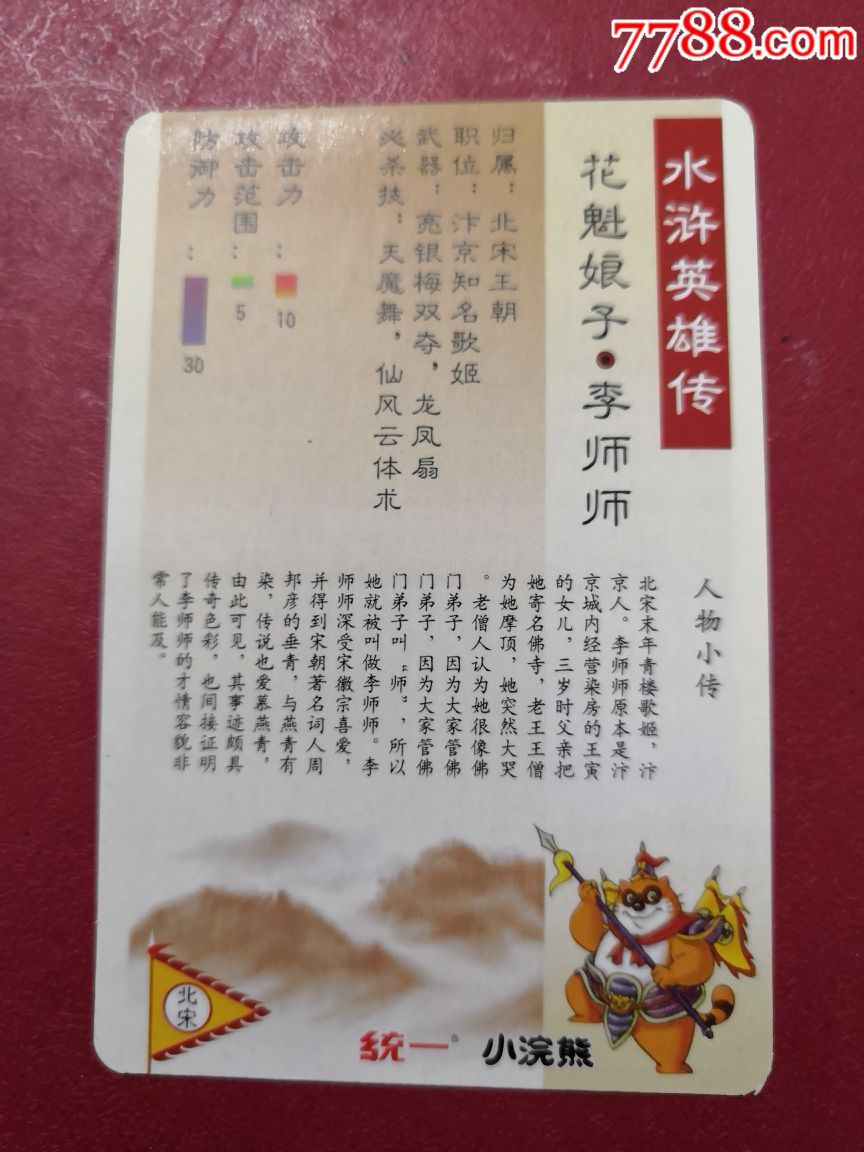 7788.com
水浒英雄传
花魁娘子·李师师
归属：北宋王朝
职位：汴京知名歌姬
武器：亮银梅双夺，龙凤扇
必杀技：天魔舞，仙风云体术
攻击力：10
攻击范围：5
防御力：30
人物小传
北宋末年青楼歌姬，汴
京人。李师师原本是汴
京城内经营染房的王寅
的女儿，三岁时父亲把
她寄名佛寺，老王王僧
为她摩顶，她突然大哭
。老僧人认为她很像佛
门弟子，因为大家管佛
门弟子，因为大家管佛
门弟子叫“师”，所以
她就被叫做李师师。李
师师深受宋徽宗喜爱，
并得到宋朝著名词人周
邦彦的垂青，与燕青有
染，传说也爱慕燕青，
由此可见，其事迹颇具
传奇色彩，也间接证明
了李师师的才情容貌非
常人能及。
北宋
统一® 小浣熊